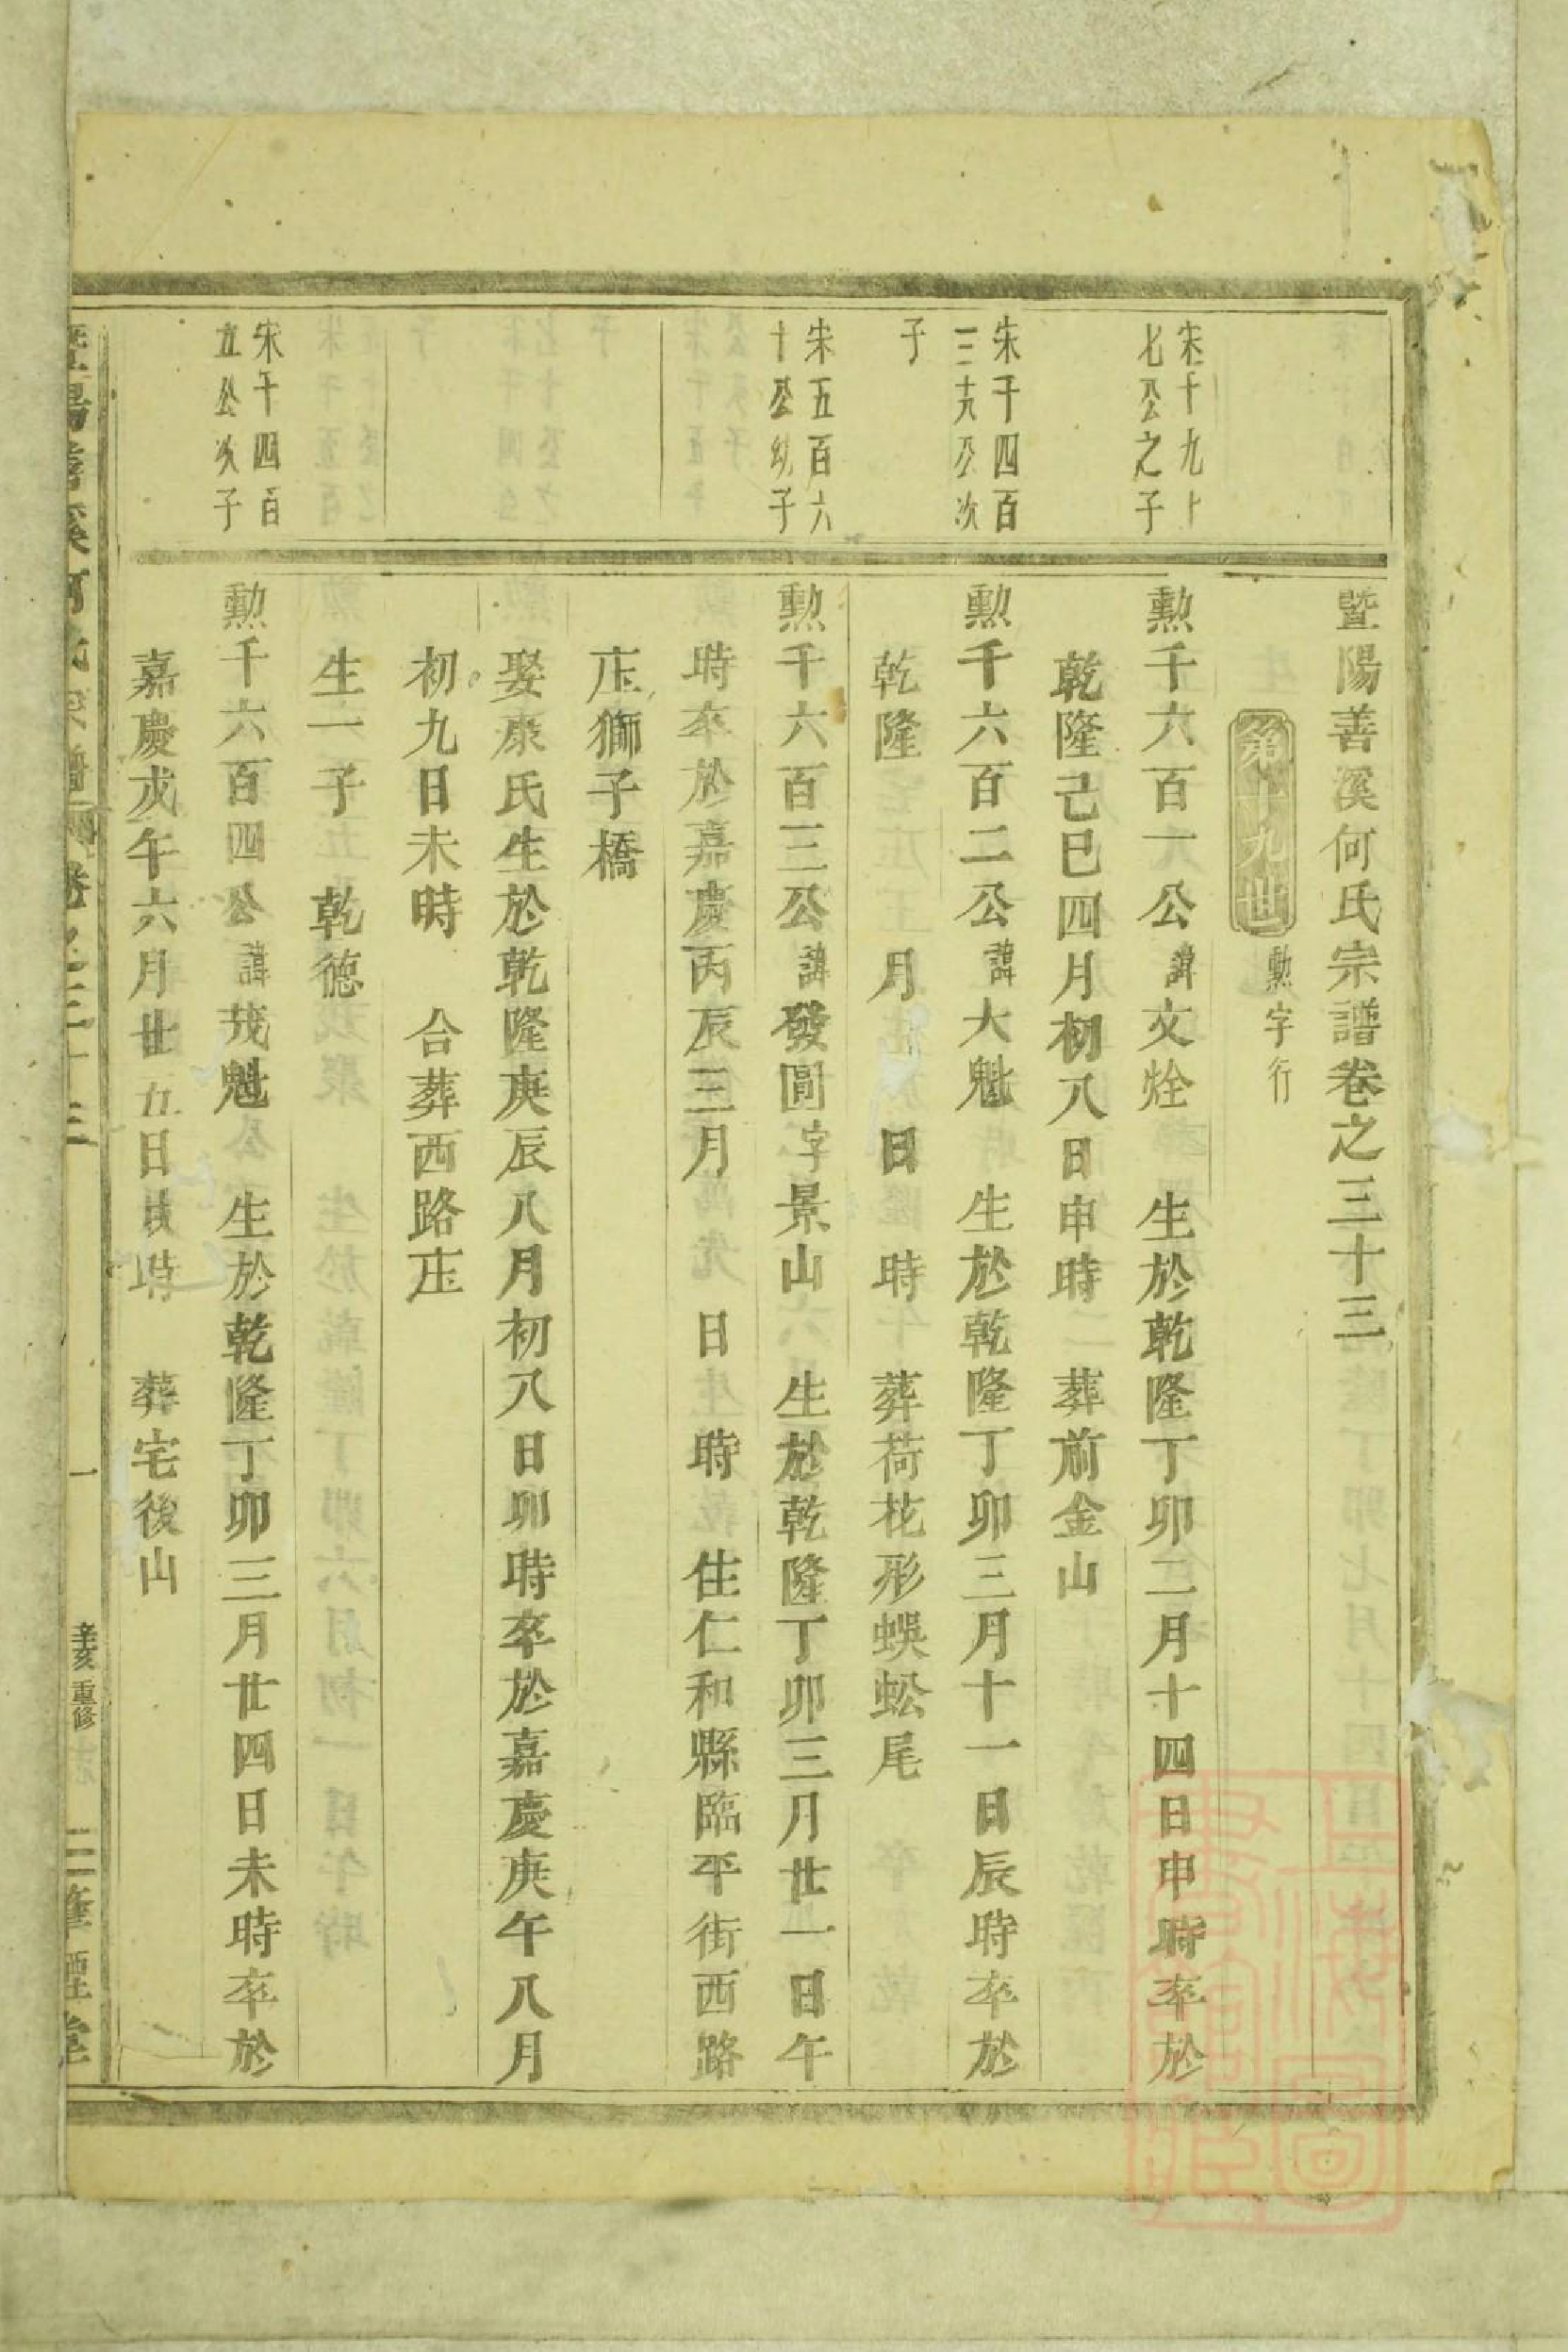 暨陽善溪何氏宗譜卷之三十三
第十九世 勲字行
宋千九十
七公之子
勲千六百一公諱文烇 生於乾隆丁卯二月十四日申時卒於
乾隆己巳四月初八日申時 葬前金山
宋千四百
三十六公次
子
勲千六百二公諱大魁 生於乾隆丁卯三月十一日辰時卒於
乾隆 月 日 時 葬荷花形蜈蚣尾
宋五百六
十公幼子
勲千六百三公諱發圓字景山 生於乾隆丁卯三月廿一日午
時卒於嘉慶丙辰三月 日 時 住仁和縣臨平街西路
庒獅子橋
娶康氏生於乾隆庚辰八月初八日卯時卒於嘉慶庚午八月
初九日未時 合葬西路庒
生一子 乾德
宋千四百
五公次子
勲千六百四公諱茂魁 生於乾隆丁卯三月廿四日未時卒於
嘉慶戊午六月廿五日 時 葬宅後山
暨陽善溪何氏宗譜 卷之三十三 一 辛亥重修 三 堂
上海圖書館藏